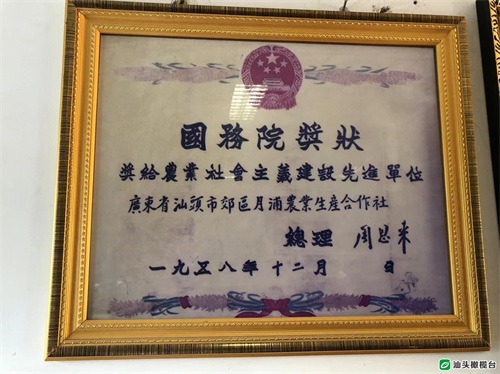 國務院獎狀
獎給農業社會主義建設先進單位
廣東省汕頭市郊區月浦農業生産合作社
總理 周恩来
一九五八年十二月 日
汕头橄榄台